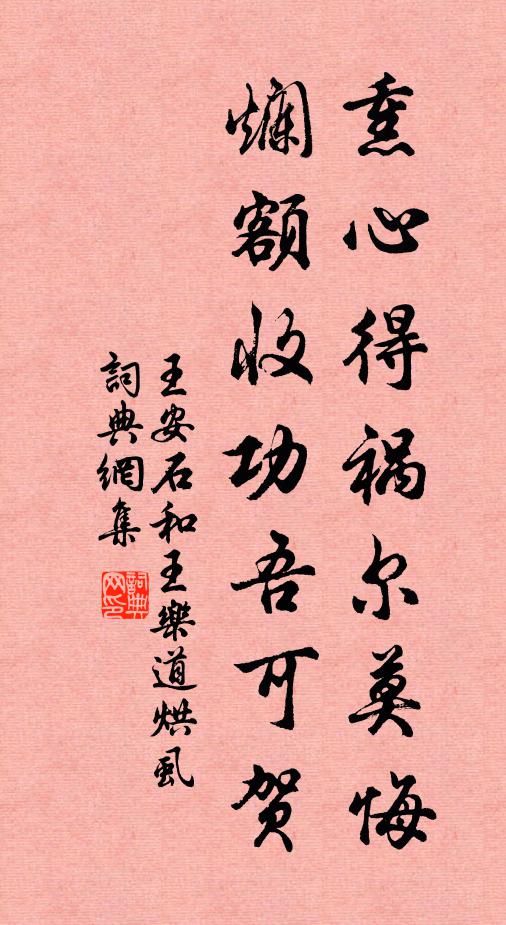 熏心得祸尔莫悔
爛額收功吾可贺
王安石和王樂道烘虱
詞典網集
詞典网印